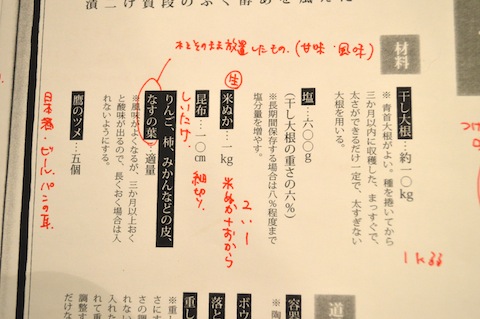 材料
干し大根…約一〇kg
※青首大根がよい。種を捲いてから
三か月以内に収穫した、まっすぐで、
太さができるだけ一定で、太すぎない
大根を用いる。
塩…六〇〇g
(干し大根の重さの六%)
※長期間保存する場合は八%程度まで
塩分量を増やす。
米ぬか…一kg
昆布…一〇cm
りんご、柿、みかんなどの皮、
なすの葉…適量
※風味がよくなるが、三か月以上おく
と酸味が出るので、長くおく場合は入
れないようにする。
鷹のツメ…五個
そのまま放置したもの。(甘味・風味)
生
米ぬか+おから
2 : 1
しいたけ
細切り
日本酒・ビール・パンの耳
道
容器
ボウ
落と
重し
※重し